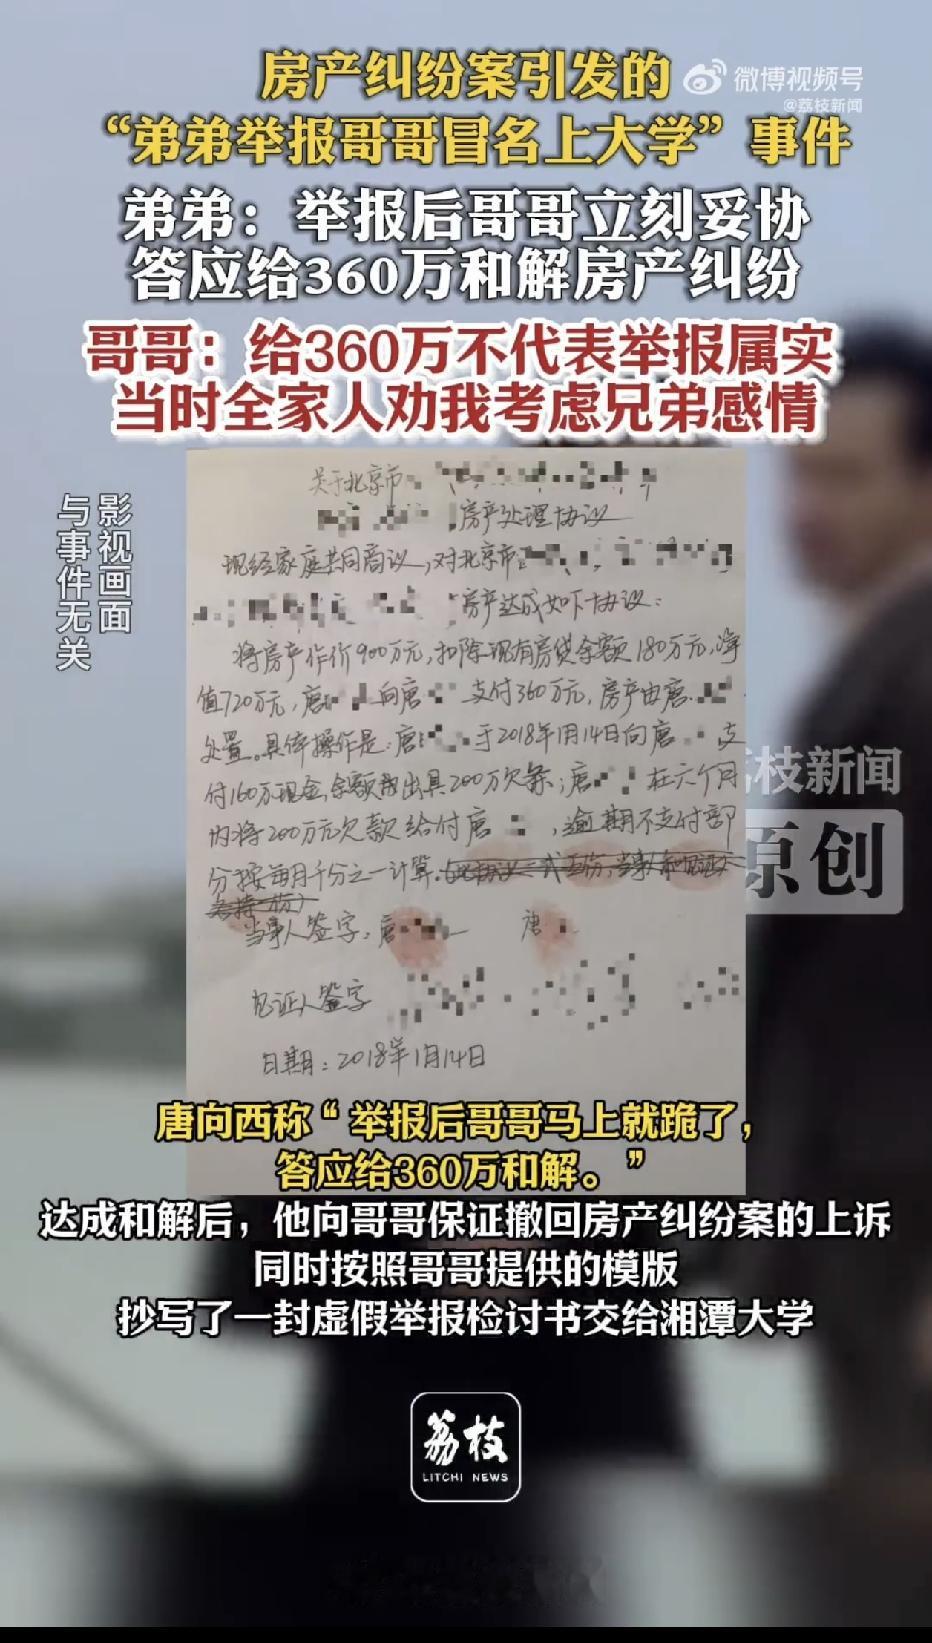 房产纠纷案引发的
微博视频号
@荔枝新闻
“弟弟举报哥哥冒名上大学”事件
弟弟：举报后哥哥立刻妥协
答应给360万和解房产纠纷
哥哥：给360万不代表举报属实
当时全家人劝我考虑兄弟感情
影视画面
与事件无关
关于北京市
房产处理协议
现经家庭共同商议，对北京市
房产达成如下协议：
将房产作价900万元，扣除现有房贷余额180万元，净
值720万元，唐 向唐 支付360万元，房产由唐
处置。具体操作是：唐 于2018年1月14日向唐 支
付160万现金，余额 出具200万欠条；唐 在六个月
内将200万元欠款给付唐 ，逾期不支付部
分按每月千分之一计算。
当事人签字：唐 唐
见证人签字
日期：2018年1月14日
枝新闻
原创
唐向西称“举报后哥哥马上就跪了，
答应给360万和解。”
达成和解后，他向哥哥保证撤回房产纠纷案的上诉
同时按照哥哥提供的模版
抄写了一封虚假举报检讨书交给湘潭大学
荔枝
LITCHI NEWS